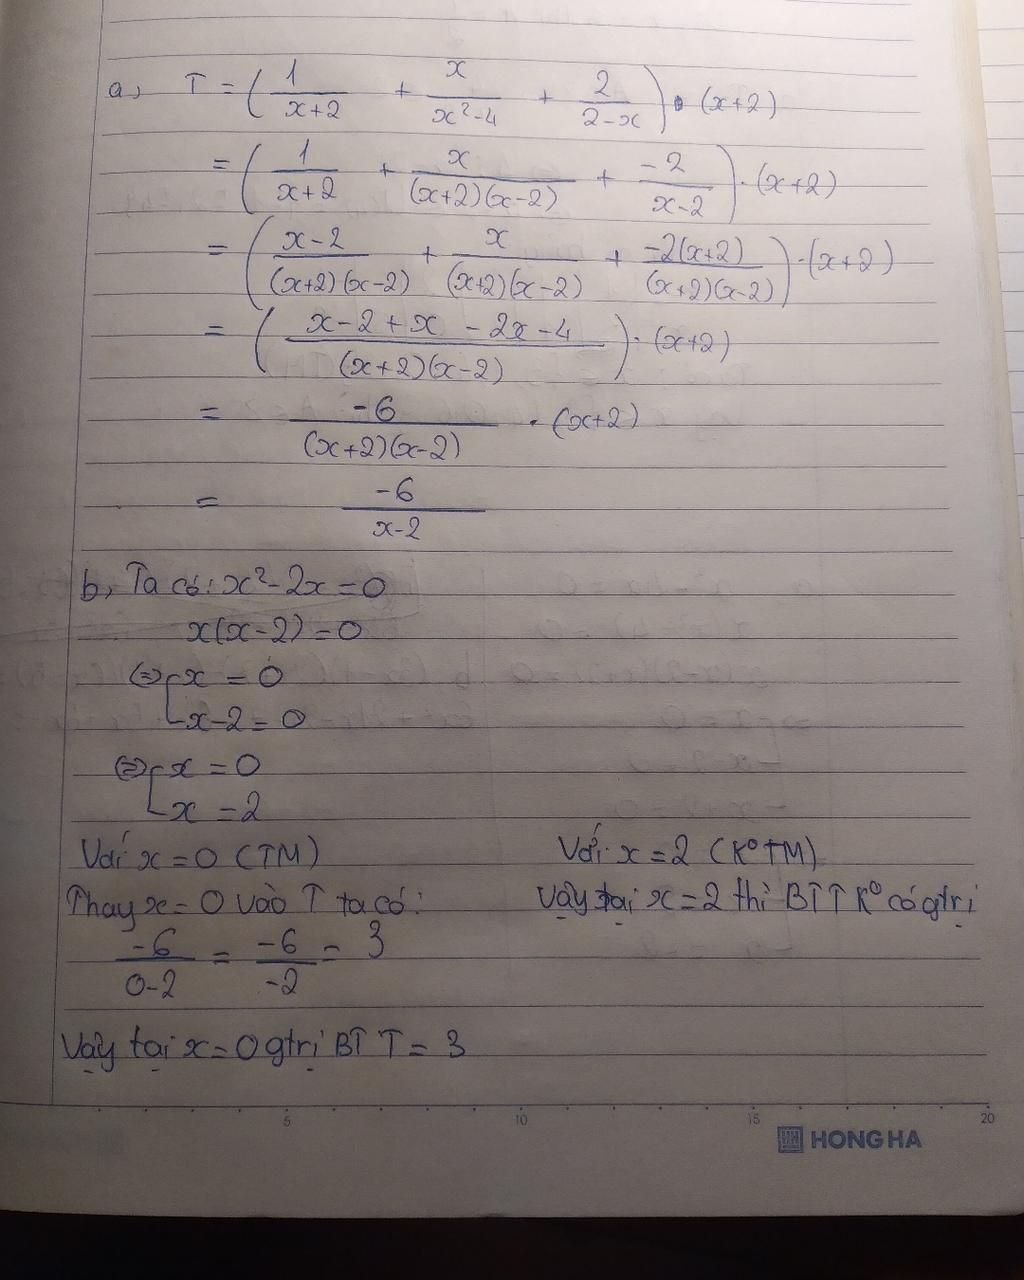 a, T = ( 1/(x+2) + x/(x²-4) + 2/(2-x) ) . (x+2)
= ( 1/(x+2) + x/((x+2)(x-2)) + -2/(x-2) ) . (x+2)
= ( (x-2)/((x+2)(x-2)) + x/((x+2)(x-2)) + -2(x+2)/((x+2)(x-2)) ) . (x+2)
= ( (x-2+x-2x-4)/((x+2)(x-2)) ) . (x+2)
= -6/((x+2)(x-2)) . (x+2)
= -6/(x-2)
b, Ta có: x²-2x=0
x(x-2)=0
(=) [ x = 0
x-2 = 0
(=) [ x = 0
x = 2
Với x=0 (TM)
Thay x=0 vào T ta có:
-6/(0-2) = -6/-2 = 3
Vậy tại x=0 gtrị BT T = 3
Với x=2 (K⁰TM)
Vậy tại x=2 thì BT T K⁰ có gtrị
5 10 15 20
HONG HA